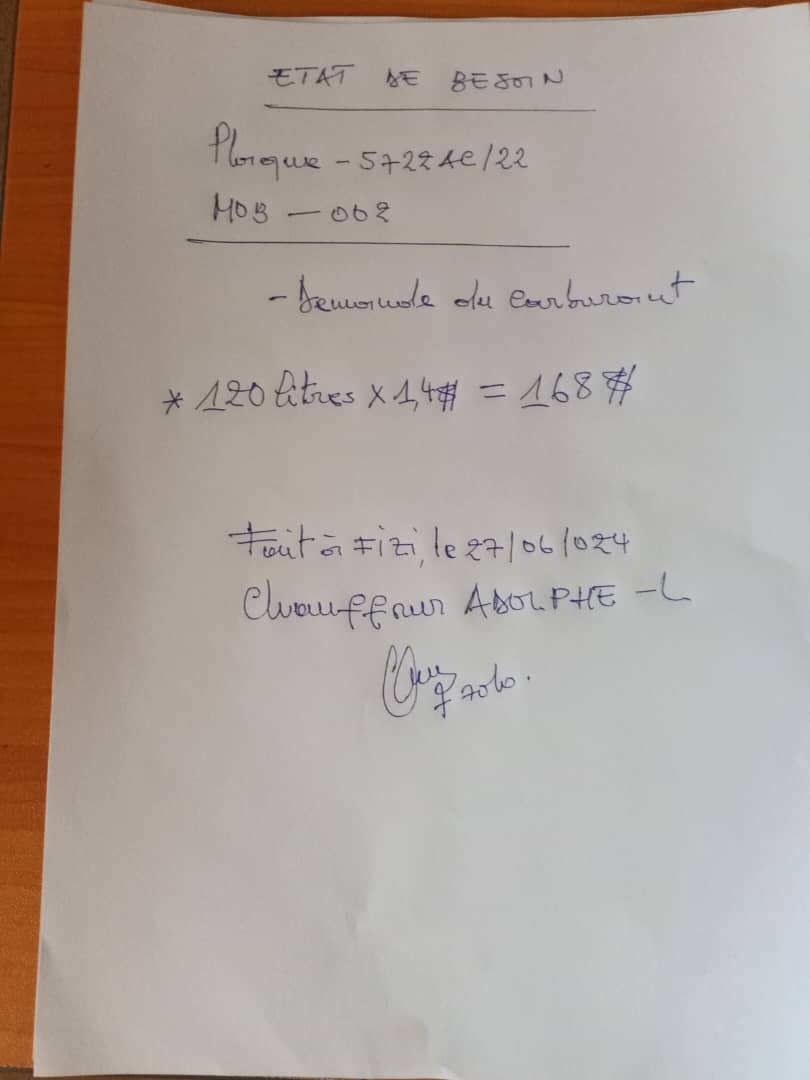 ETAT DE BESOIN
Plaque - 5722AC/22
MOB - 002
- Demande du Carburant
* 120 litres x 1,4$ = 168$
Fait à Fizi, le 27/06/024
Chauffeur ADOLPHE - L